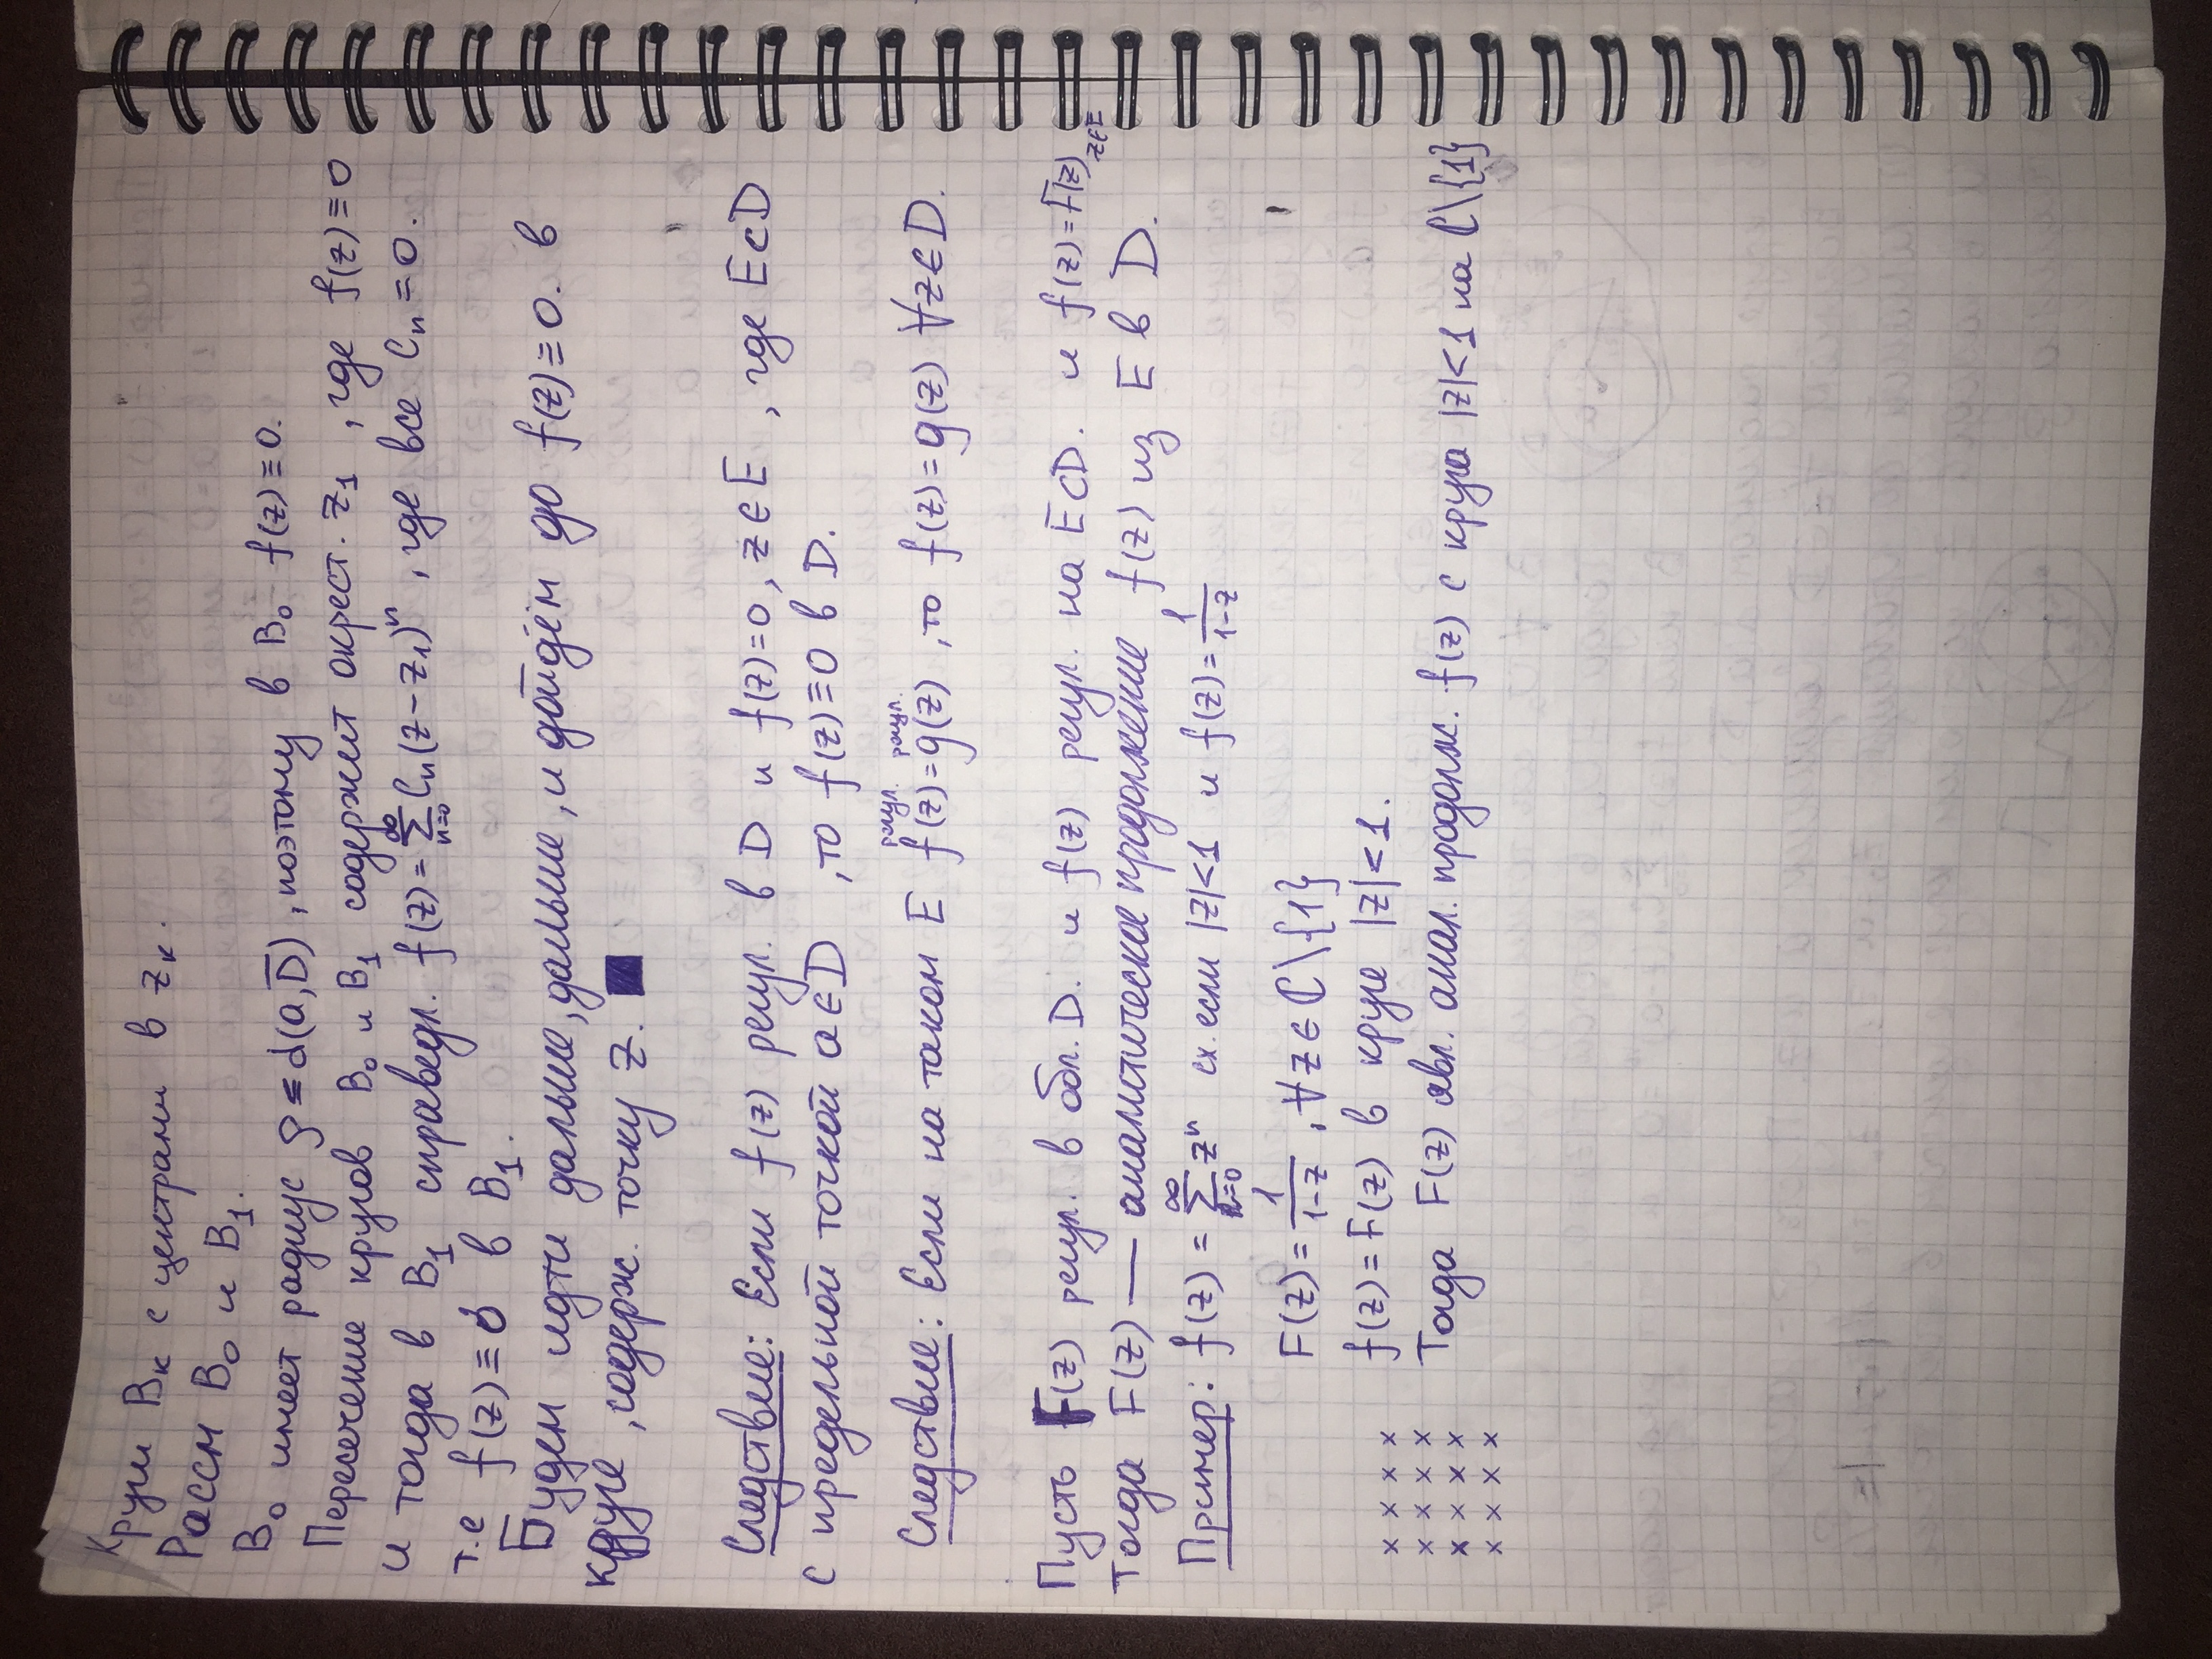 Круги Bк с центрами в zк.
Рассм B₀ и B₁.
B₀ имеет радиус ρ ≤ d(a, D̅), поэтому в B₀ f(z) ≡ 0.
Пересечение кругов B₀ и B₁ содержит окрест. z₁, где f(z) ≡ 0
и тогда в B₁ справедл. f(z) = ∑_{n=0}^{∞} Cₙ(z − z₁)ⁿ, где все Cₙ = 0.
т.е f(z) ≡ 0 в B₁.
Будем идти дальше, дальше, и дойдём до f(z) ≡ 0. в
круге, содерж. точку z. ■
Следствие: Если f(z) регул. в D и f(z)=0, z ∈ E, где E ⊂ D
с предельной точкой a ∈ D, то f(z) ≡ 0 в D.
регул. регул.
Следствие: Если на таком E f(z) = g(z), то f(z) = g(z) ∀z ∈ D.
Пусть F(z) регул. в обл. D. и f(z) регул. на E ⊂ D. и f(z) = F(z) z∈E
Тогда F(z) — аналитическое продолжение f(z) из E в D.
Пример: f(z) = ∑_{n=0}^{∞} zⁿ сх. если |z| < 1 и f(z) = 1/(1−z)
F(z) = 1/(1−z), ∀z ∈ ℂ\{1}
f(z) = F(z) в круге |z| < 1.
Тогда F(z) явл. анал. продолж. f(z) с круга |z| < 1 на ℂ\{1}
× × × ×
× × × ×
× × × ×
× × × ×